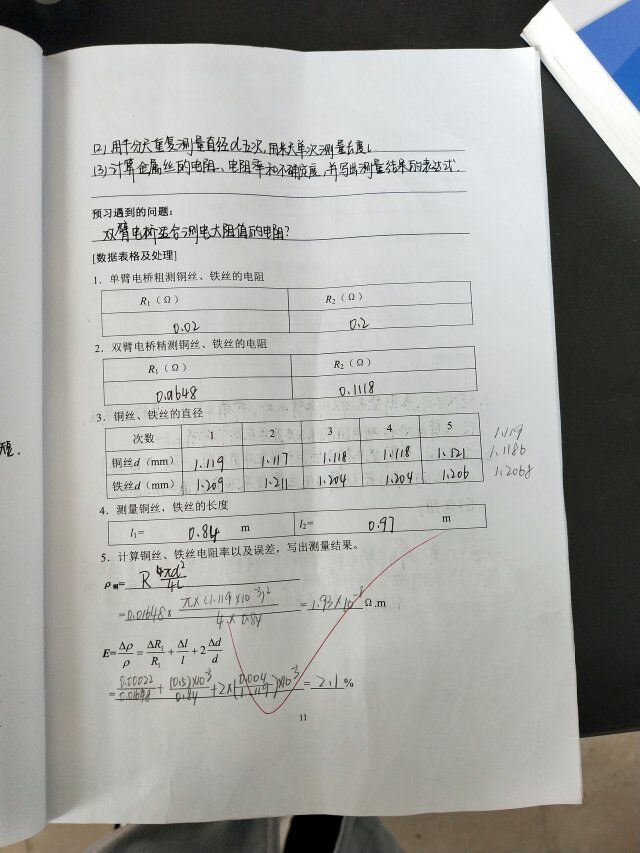 (2) 用千分尺重复测量直径d五次,用米尺单次测量长度L
(3) 计算金属丝的电阻、电阻率和不确定度,并写出测量结果的表达式.
预习遇到的问题:
双臂电桥适合测电大阻值的电阻?
[数据表格及处理]
1.单臂电桥粗测铜丝、铁丝的电阻
R₁(Ω) R₂(Ω)
0.02 0.2
2.双臂电桥精测铜丝、铁丝的电阻
R₁(Ω) R₂(Ω)
0.01648 0.1118
3.铜丝、铁丝的直径
次数 1 2 3 4 5
1.119
铜丝d(mm) 1.119 1.117 1.118 1.118 1.121 1.1186
铁丝d(mm) 1.209 1.211 1.204 1.204 1.206 1.2068
4.测量铜丝,铁丝的长度
l₁= 0.84 m l₂= 0.97 m
5.计算铜丝、铁丝电阻率以及误差,写出测量结果。
ρ铜= R πd²/4L
=0.01648× π×(1.119×10⁻³)²/4×0.84 = 1.93×10⁻⁸ Ω.m
E=Δρ/ρ=ΔR₁/R₁+Δl/l+2Δd/d
=0.00022/0.01648+(0.5)×10⁻³/0.84+2×(0.004/1.119)×10⁻³= 2.1 %
11